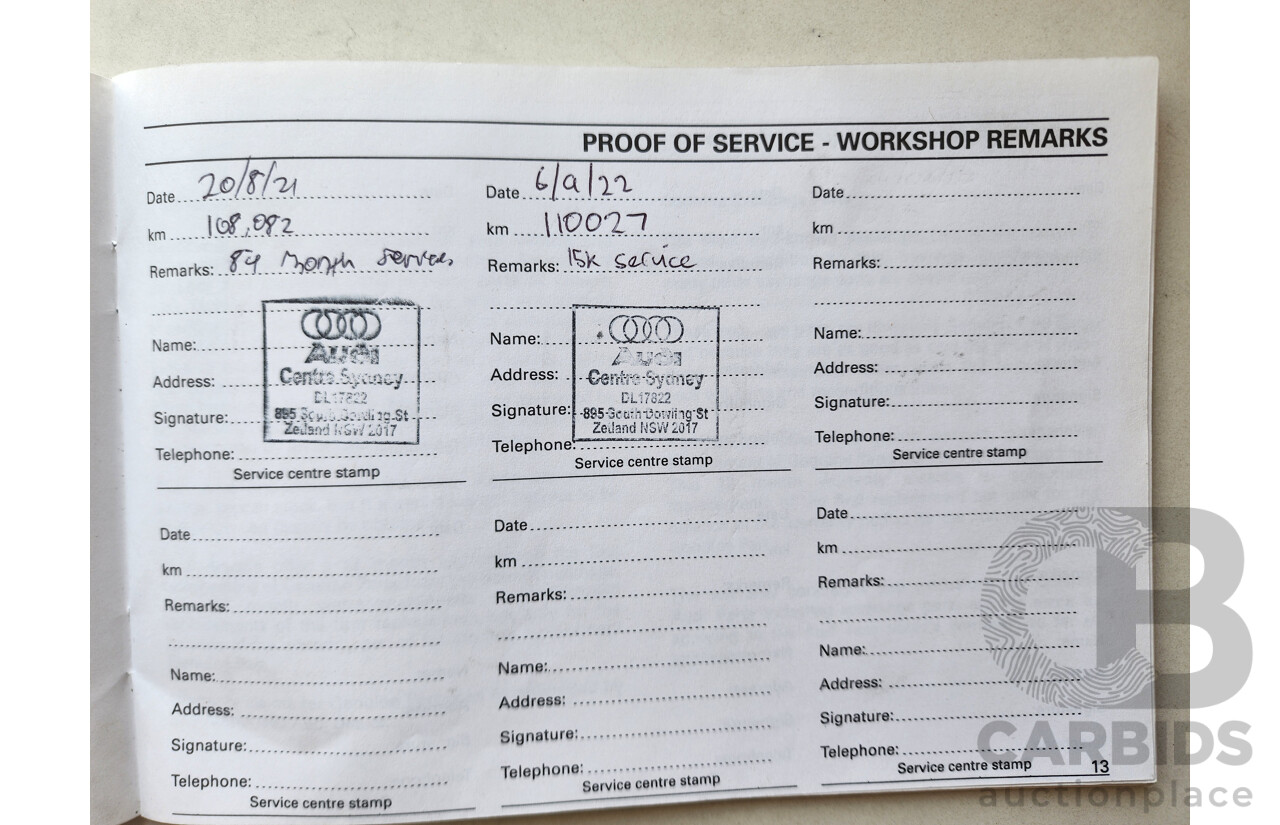 PROOF OF SERVICE - WORKSHOP REMARKS
Date 20/8/21
km 108,082
Remarks: 84 Month Service
Name:
Address:
Signature:
Telephone:
Audi
Centre Sydney
DL17822
895 South Dowling St
Zetland NSW 2017
Service centre stamp
Date 6/9/22
km 110027
Remarks: 15K service
Name:
Address:
Signature:
Telephone:
Audi
Centre Sydney
DL17822
895 South Dowling St
Zetland NSW 2017
Service centre stamp
Date
km
Remarks:
Name:
Address:
Signature:
Telephone:
Service centre stamp
Date
km
Remarks:
Name:
Address:
Signature:
Telephone:
Service centre stamp
Date
km
Remarks:
Name:
Address:
Signature:
Telephone:
Service centre stamp
Date
km
Remarks:
Name:
Address:
Signature:
Telephone:
Service centre stamp
13
CARBIDS
auctionplace